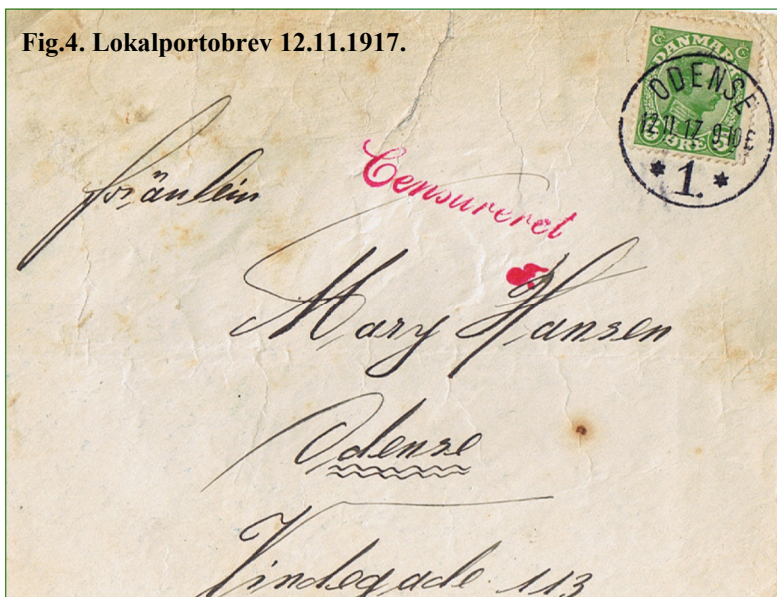 Fig.4. Lokalportobrev 12.11.1917.
DANMARK
ØRE 5
ODENSE
12.11.17. 9-10 E
* 1. *
Censureret
Fräulein
Mary Hansen
Odense
Vindegade 113